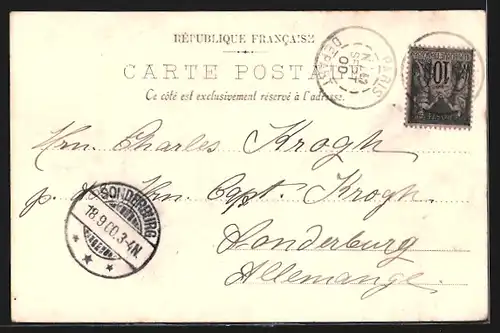 RÉPUBLIQUE FRANÇAISE
CARTE POSTALE
Ce côté est exclusivement réservé à l'adresse.
PARIS
DEPART
SEPT
00
10
Hrn. Charles Krogh
p. Hrn. Cpt. Krogh.
Sonderburg
Allemange.
SONDERBURG
18.9.00.3-4N.